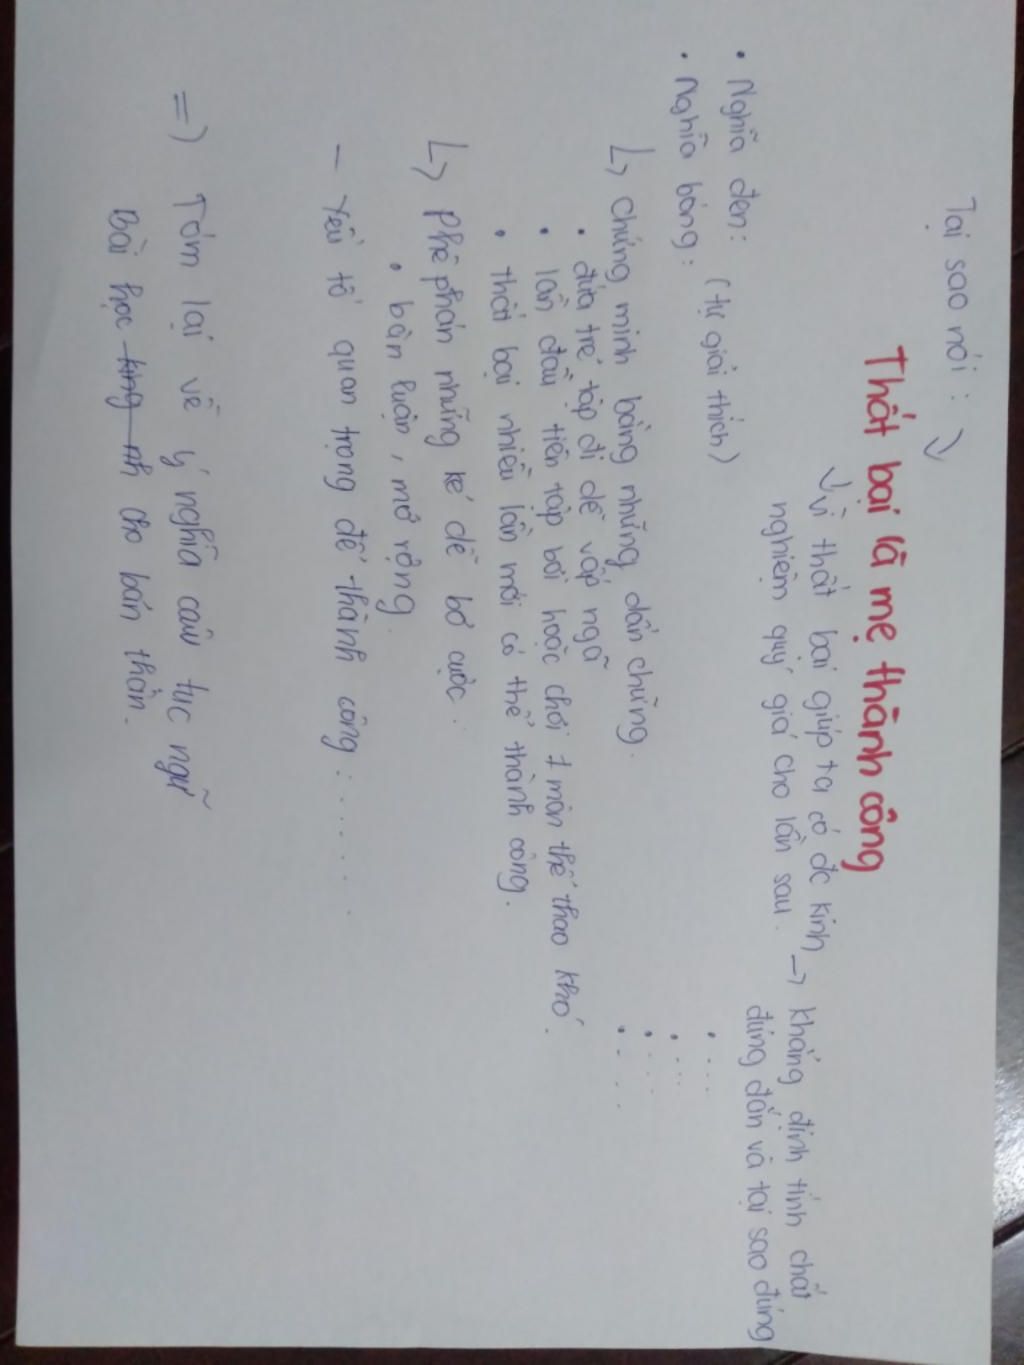 Tại sao nói : ↴
Thất bại là mẹ thành công
↳ vì thất bại giúp ta có đc kinh → khẳng định tính chất
nghiệm quý giá cho lần sau. đúng đắn và tại sao đúng
• Nghĩa đen : (tự giải thích) • ....
• Nghĩa bóng : • ....
• ....
↳ chứng minh bằng những dẫn chứng.
• đứa trẻ tập đi dễ vấp ngã
• lần đầu tiên tập bơi hoặc chơi 1 môn thể thao khó.
• thất bại nhiều lần mới có thể thành công.
↳ Phê phán những kẻ dễ bỏ cuộc.
• bàn luận, mở rộng
- Yếu tố quan trọng để thành công : ......
=) Tóm lại về ý nghĩa câu tục ngữ
Bài học cho bản thân.